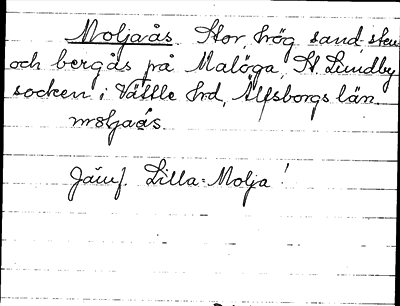 Moljaås. Stor, hög sand, sten
och bergås på Malöga, St. Lundby
socken i Vättle hrd, Älfsborgs län.
moljaås.
Jämf. Lilla-Molja!